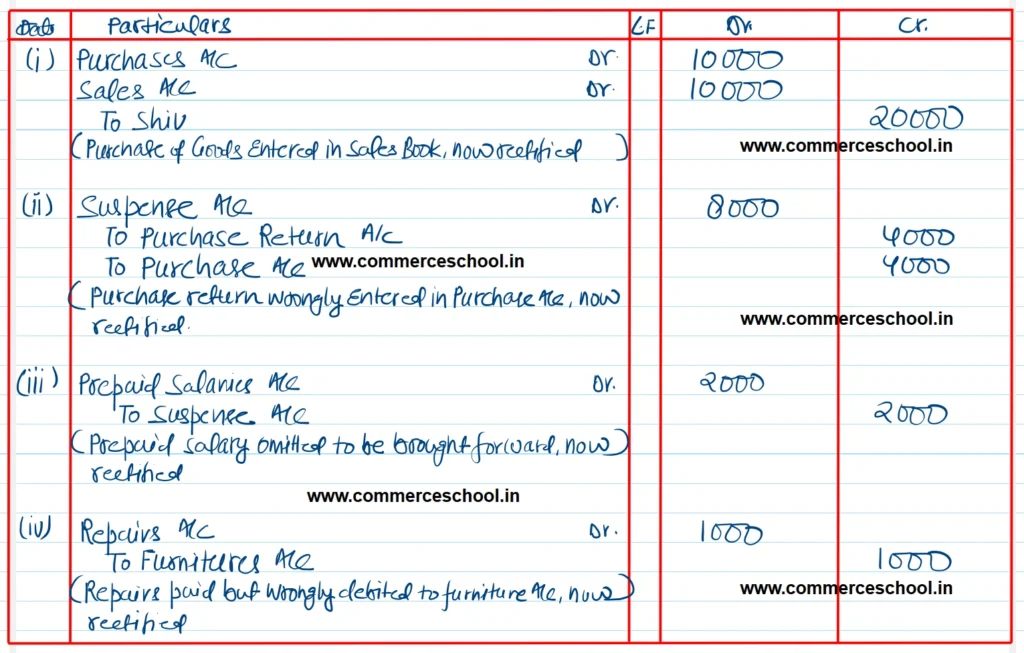 Date Particulars L.F Dr. Cr.
(i) Purchases A/C Dr. 10000
Sales A/C Dr. 10000
To Shiv 20000
(Purchase of Goods Entered in Sales Book, now rectified) www.commerceschool.in
(ii) Suspense A/C Dr. 8000
To Purchase Return A/C 4000
To Purchase A/C www.commerceschool.in 4000
(Purchase return wrongly Entered in Purchase A/C, now
rectified. www.commerceschool.in
(iii) Prepaid Salaries A/C Dr. 2000
To Suspense A/C 2000
(Prepaid salary omitted to be brought forward, now)
rectified
www.commerceschool.in
(iv) Repairs A/C Dr. 1000
To Furnitures A/C 1000
(Repairs paid but wrongly debited to furniture A/C, now) www.commerceschool.in
rectified